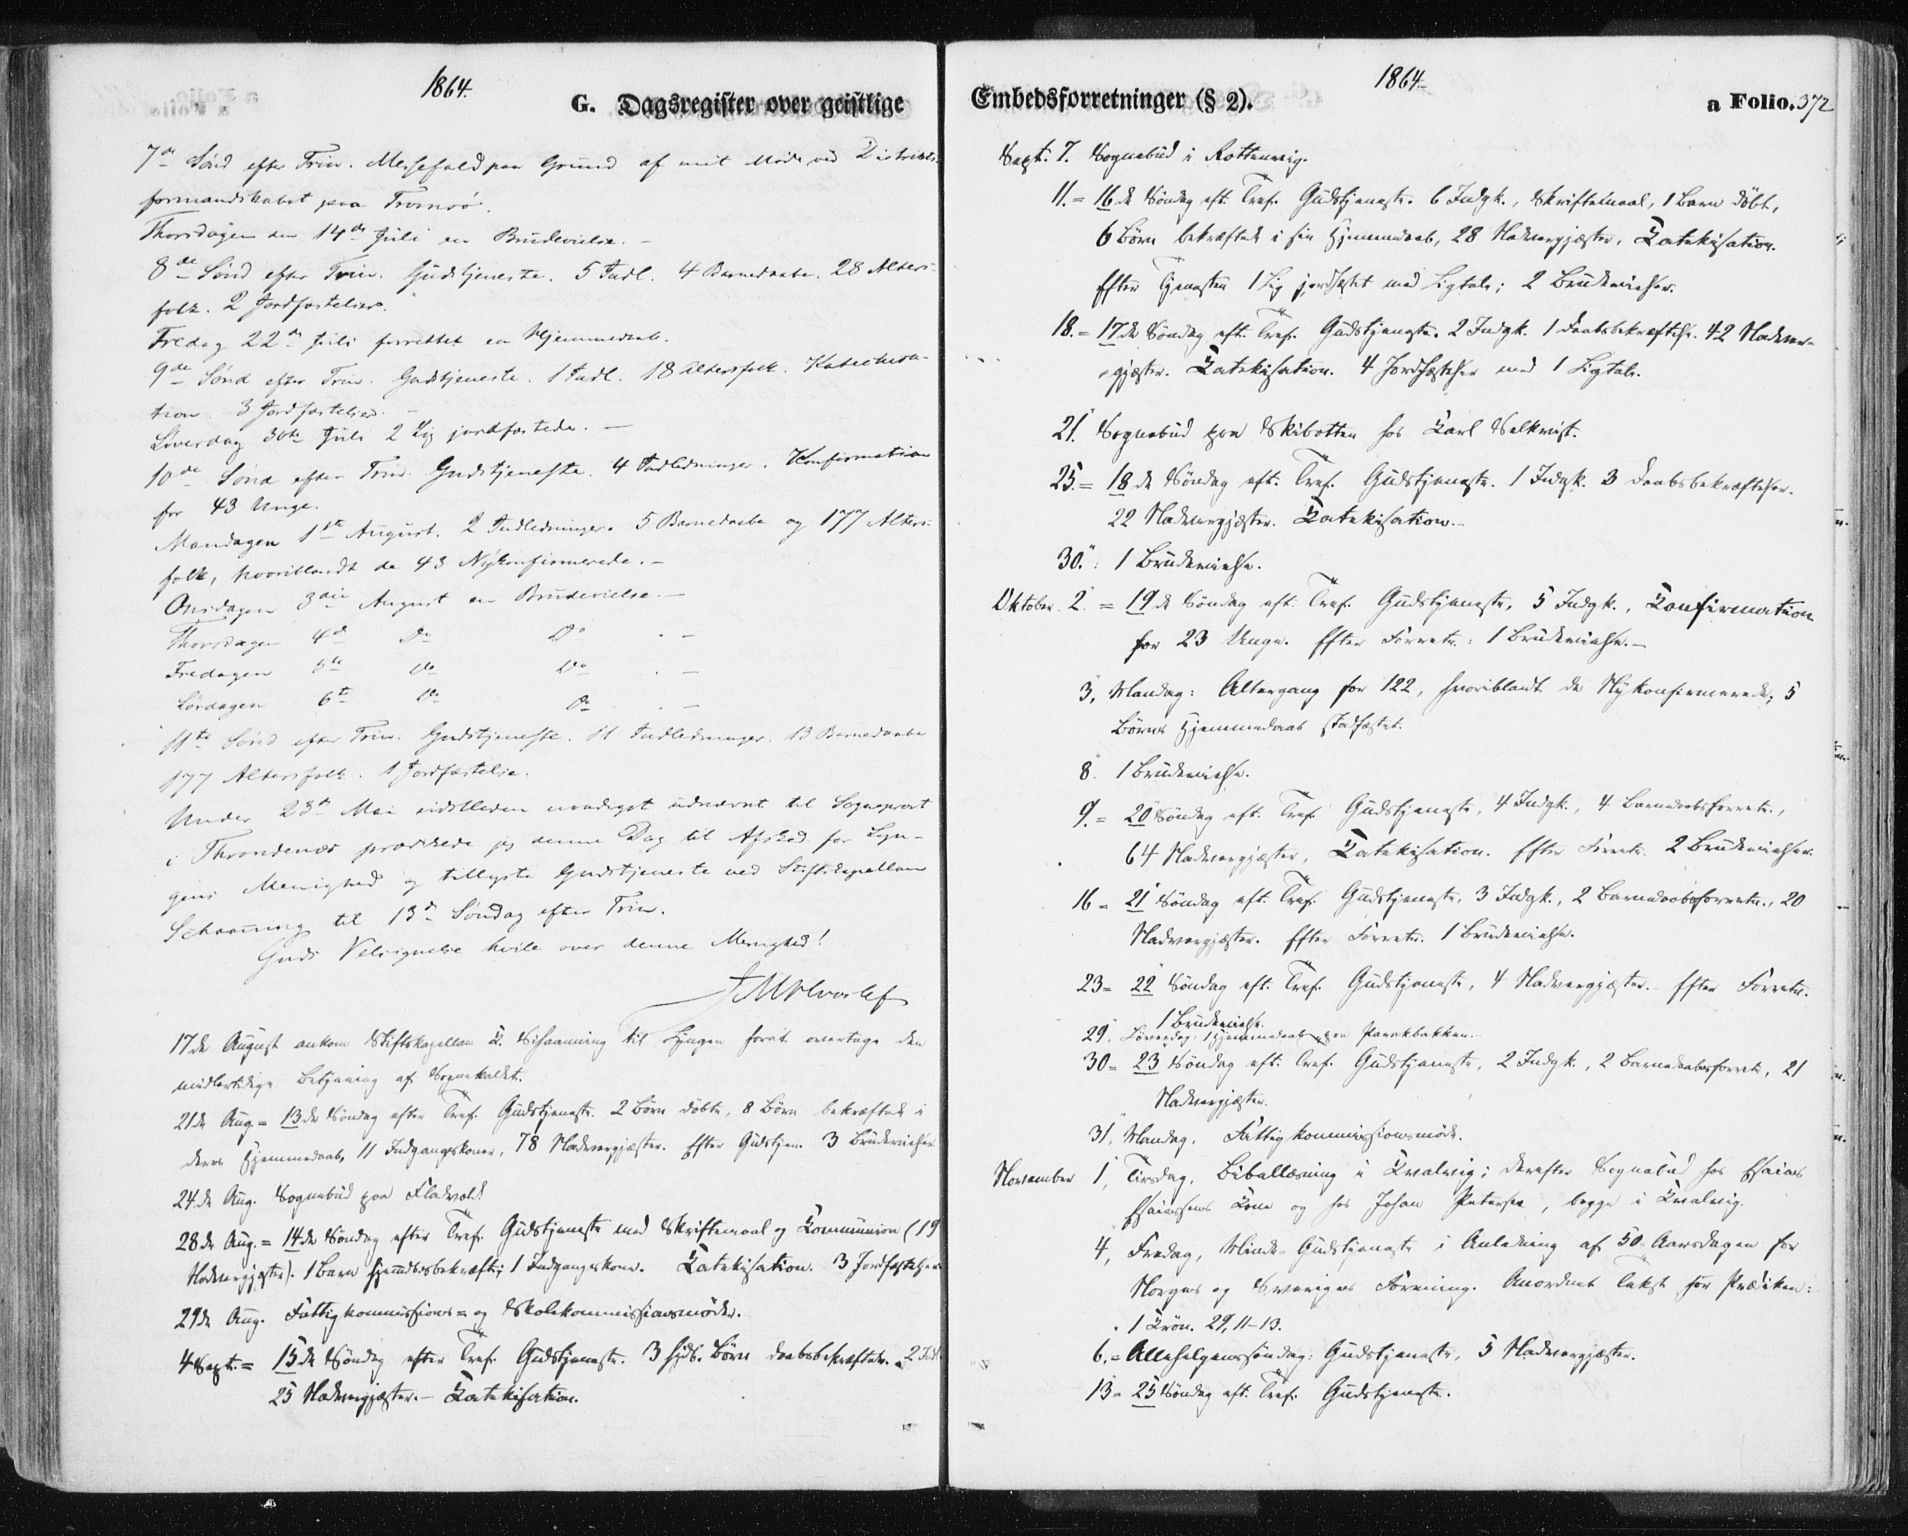 1864.
G. Dagsregister over geistlige
7de Sönd efter Trin. Messefald paa Grund af mit Möde ved Distrikts-
formandskabet paa Tromsö.
Thorsdagen den 14de Juli en Brudevielse. –
8de Sönd efter Trin. Gudstjeneste. 5 Indl. 4 Barnedaabe. 28 Alters-
folk. 2 Jordfæstelser.
Fredag 22de Juli forrettet en Hjemmedaab.
9de Sönd efter Trin. Gudstjeneste. 1 Indl. 18 Altersfolk. Katechisa-
tion. 3 Jordfæstelser. –
Löverdag 30te Juli 2 Lig jordfæstede. –
10de Sönd efter Trin. Gudstjeneste. 4 Indledninger. Konfirmation
for 43 Unge.
Mandagen 1ste August. 2 Indledninger. 5 Barnedaabe og 177 Alters-
folk, hvoriblandt de 43 Nykonfirmerede. –
Onsdagen 3die August en Brudevielse. –
Thorsdagen 4de Do Do . –
Fredagen 5te Do Do . –
Lördagen 6te Do Do . –
11te Sönd efter Trin. Gudstjeneste. 11 Indledninger. 13 Barnedaabe
177 Altersfolk. 1 Jordfæstelse.
Under 23de Mai sidstleden naadigst udnævnt til Sogneprest
i Throndenæs prædikede jeg denne Dag til Afsked for Lyn-
gens Menighed og tillyste Gudstjeneste ved Stiftskapellan
Schaaning til 13de Söndag efter Trin.
Guds Velsignelse hvile over denne Menighed!
17de August ankom Stiftskapellan Schaanning til Lyngen forat overtage den
midlertidige Betjening af Sognekaldet.
21de Aug. = 13de Söndag efter Tref. Gudstjeneste. 2 Börn döbte, 8 Börn bekræftede i
deres Hjemmedaab, 11 Indgangskoner, 78 Nadvergjæster. Efter Gudstjen. 3 Brudevielser.
24de Aug. Sognebud paa
28de Aug. = 14de Söndag efter Tref. Gudstjeneste med Skriftemaal og Communion (19
Nadvergjæster). 1 Barn 1 Indgangskone. Catekisation. 3 Jordfæstelser
29de Aug. Fattigkommissions= og Skolekommissionsmöder.
4 Sept. = 15de Söndag efter Tref. Gudstjeneste. 3 Börn daabsbekræftede. 2 Indl.
25 Nadvergjæster. – Catekisation.
1864.
Embedsforretninger (§ 2).
a Folio. 372
Sept. 7. Sognebud i Rottenvig.
11. = 16de Söndag eft. Tref. Gudstjeneste. 6 Indgk., Skriftemaal, 1 Barn döbt,
6 Börn bekræftede i sin Hjemmedaab, 28 Nadvergjæster, Catekisation.
Efter Tjenesten 1 Lig jordfæstet med Ligtale; 2 Brudevielser.
18. = 17de Söndag eft. Tref. Gudstjeneste. 2 Indgk. 1 Daabsbekræftelse. 42 Nadver-
gjæster. Catekisation. 4 Jordfæstelser med 1 Ligtale.
21. Sognebud paa Skibotten hos Carl
25. = 18de Söndag eft. Tref. Gudstjeneste. 1 Indgk. 3 Daabsbekræftelser.
22 Nadvergjæster. Catekisation. –
30. : 1 Brudevielse.
Oktober 2. = 19de Söndag eft. Tref. Gudstjeneste, 5 Indgk., Confirmation
for 23 Unge. Efter Forretn.: 1 Brudevielse. –
3, Mandag: Altergang for 122, hvoriblandt de Nykonfirmerede; 5
Börns Hjemmedaab stadfæstet.
8. 1 Brudevielse.
9. = 20 Söndag eft. Tref. Gudstjeneste, 4 Indgk., 4 Barnedaabsforretn.,
64 Nadvergjæster, Catekisation. Efter Forretn. 2 Brudevielser.
16 = 21 Söndag eft. Tref. Gudstjeneste, 3 Indgk., 2 Barnedaabsforretn., 20
Nadvergjæster. Efter Forretn. 1 Brudevielse.
23 = 22 Söndag eft. Tref. Gudstjeneste, 4 Nadvergjæster. Efter Forretn.
1 Brudevielse.
29, Löverdag: 1 Hjemmedaab paa
30 = 23 Söndag eft. Tref. Gudstjeneste, 2 Indgk., 2 Barnedaabsforretn., 21
Nadvergjæster.
31, Mandag. Fattigkommissionsmöde.
November 1, Tirsdag. Bibellæsning i Kvalvig; derefter Sognebud hos Esaias
Esaiassens Kone og hos Johan Petersen, begge i Kvalvig.
4, Fredag, Minde-Gudstjeneste i Anledning af 50-Aarsdagen for
Norges og Sveriges Forening. Anordnet Tekst for Prædiken:
1 Krön. 29, 11–13.
6. = Allehelgenssöndag: Gudstjeneste, 5 Nadvergjæster.
13 = 25 Söndag eft. Tref. Gudstjeneste.